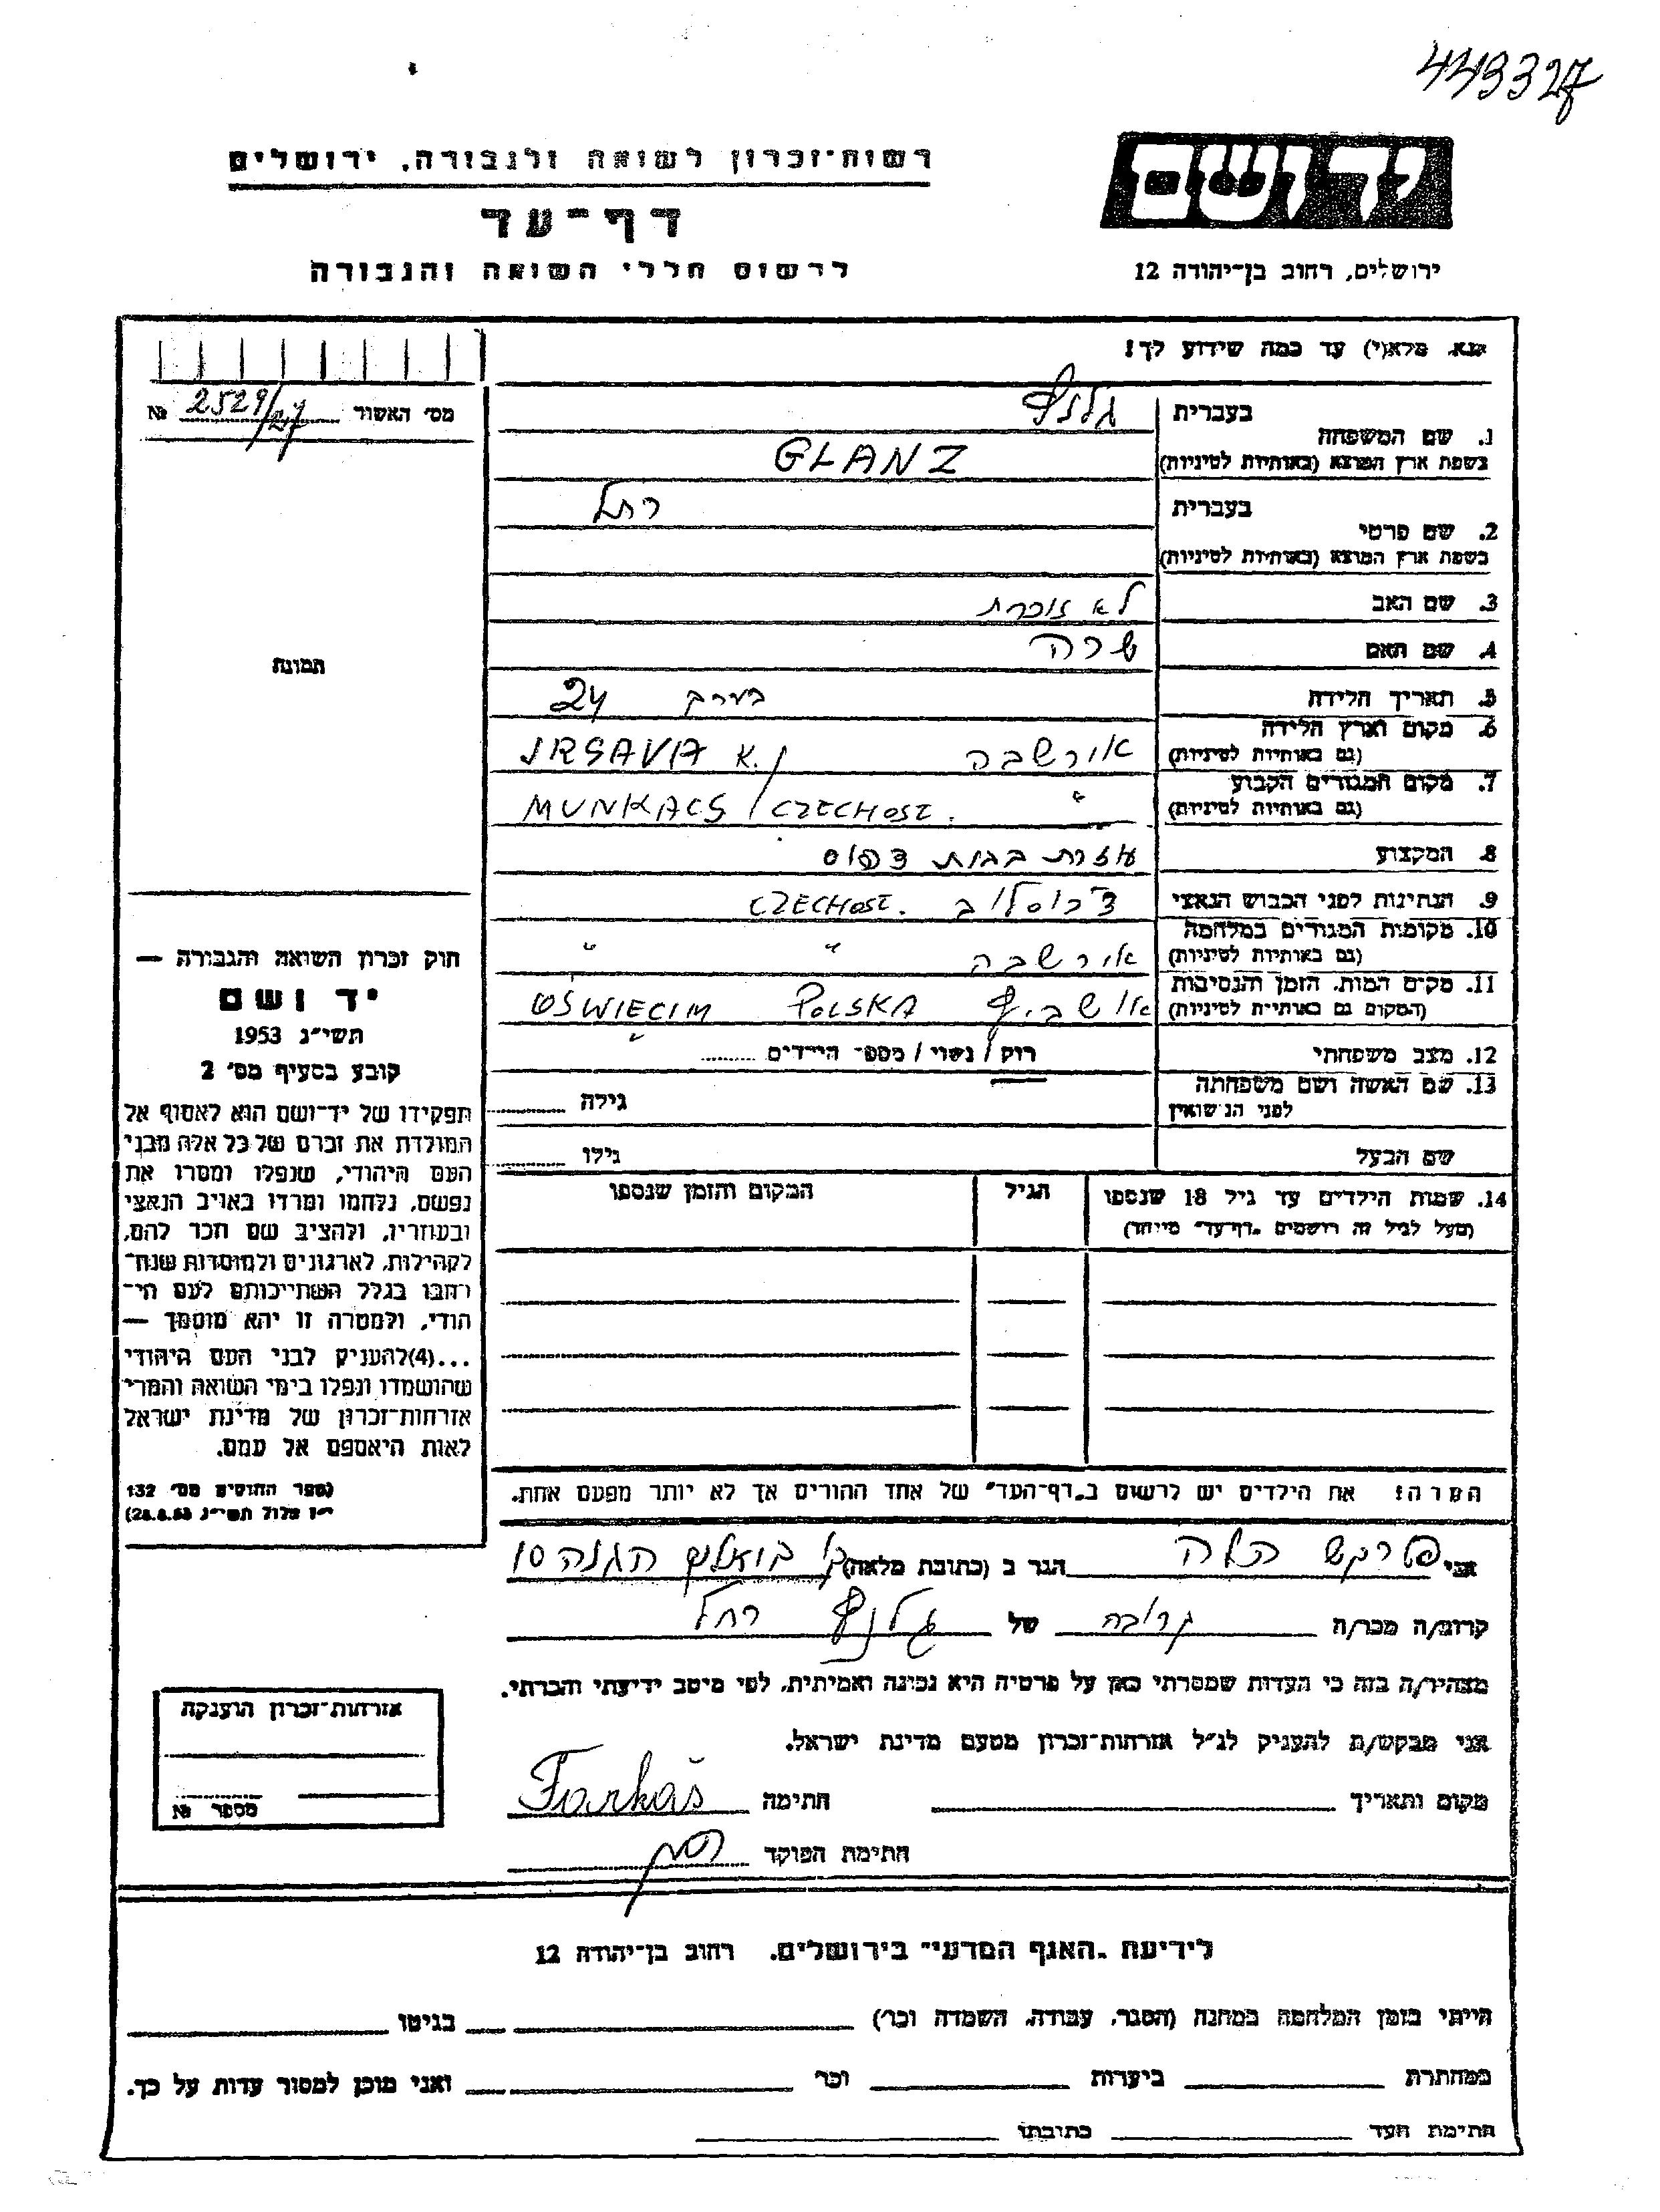 443327
רשות־זכרון לשואה ולגבורה, ירושלים
יד ושם
דף־עד
לרשום חללי השואה והגבורה
ירושלים, רחוב בן־יהודה 12
נא, מלא(י) עד כמה שידוע לך!
מס׳ האשור № 2529/27
בעברית גלנץ
1. שם המשפחה
בשפת ארץ המוצא (באותיות לטיניות) GLANZ
בעברית רחל
2. שם פרטי
בשפת ארץ המוצא (באותיות לטיניות)
3. שם האב לא זוכרת
4. שם האם שרה
תמונה
5. תאריך הלידה בערך 24
6. מקום וארץ הלידה
(גם באותיות לטיניות) אורשבה IRSAVA K./
7. מקום המגורים הקבוע
(גם באותיות לטיניות) " MUNKACS / CZECHOSL.
8. המקצוע עוזרת בבית דפוס
9. הנתינות לפני הכבוש הנאצי צ'כוסלוב. CZECHOSL.
10. מקומות המגורים במלחמה
(גם באותיות לטיניות) אורשבה " "
11. מקום המות, הזמן והנסיבות
(המקום גם באותיות לטיניות) אושביץ POLSKA OŚWIECIM
12. מצב משפחתי רוק/ נשוי/ מספר הילדים
13. שם האשה ושם משפחתה
לפני הנישואין גילה
שם הבעל גילו
14. שמות הילדים עד גיל 18 שנספו הגיל המקום והזמן שנספו
(מעל לגיל זה רושמים „דף־עד” מיוחד)
חוק זכרון השואה והגבורה —
יד ושם
תשי״ג 1953
קובע בסעיף מס׳ 2
תפקידו של יד־ושם הוא לאסוף אל
המולדת את זכרם של כל אלה מבני
העם היהודי, שנפלו ומסרו את
נפשם, נלחמו ומרדו באויב הנאצי
ובעוזריו, ולהציב שם וזכר להם,
לקהילות, לארגונים ולמוסדות שנח־
רבו בגלל השתייכותם לעם הי־
הודי, ולמטרה זו יהא מוסמך —
...(4)להעניק לבני העם היהודי
שהושמדו ונפלו בימי השואה והמרי
אזרחות־זכרון של מדינת ישראל
לאות היאספם אל עמם.
(ספר החוקים מס׳ 132
י״ז אלול תשי״ג 28.8.53)
הערה! את הילדים יש לרשום ב„דף־העד” של אחד ההורים אך לא יותר מפעם אחת.
אני פרקש הלה הגר ב (כתובת מלאה) ק. ביאליק הגנה 10
קרוב/ה מכר/ה קרובה של גלנץ רחל
מצהיר/ה בזה כי העדות שמסרתי כאן על פרטיה היא נכונה ואמיתית, לפי מיטב ידיעתי והכרתי.
אני מבקש/ת להעניק לנ״ל אזרחות־זכרון מטעם מדינת ישראל.
מקום ותאריך חתימה Farkaš
חתימת הפוקד
אזרחות־זכרון הוענקה
מספר №
לידיעת „האגף המדעי” בירושלים, רחוב בן־יהודה 12
הייתי בזמן המלחמה במחנה (הסגר, עבודה, השמדה וכר׳) בגיטו
במחתרת ביערות וכר ואני מוכן למסור עדות על כך.
חתימת העד כתובתו